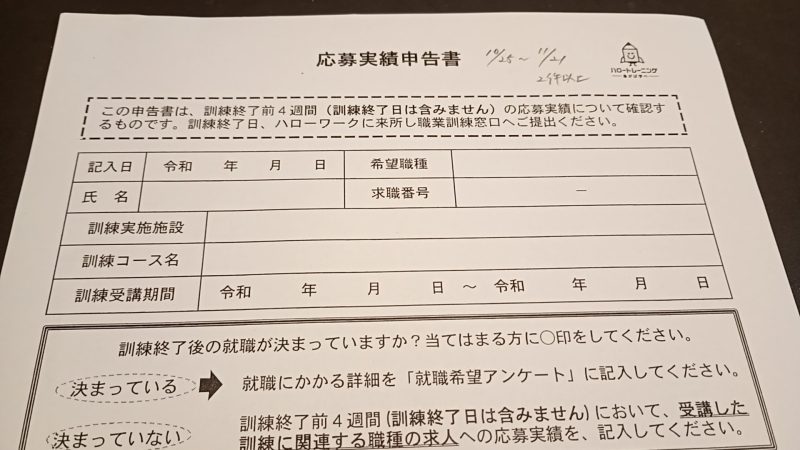 応募実績申告書
10/25〜11/21
2件以上
ハロートレーニング
この申告書は、訓練終了前４週間（訓練終了日は含みません）の応募実績について確認す
るものです。訓練終了日、ハローワークに来所し職業訓練窓口へご提出ください。
記入日 令和 年 月 日 希望職種
氏 名 求職番号 －
訓練実施施設
訓練コース名
訓練受講期間 令和 年 月 日 ～ 令和 年 月 日
訓練終了後の就職が決まっていますか？当てはまる方に〇印をしてください。
決まっている 就職にかかる詳細を「就職希望アンケート」に記入してください。
訓練終了前４週間(訓練終了日は含みません)において、受講した
決まっていない 訓練に関連する職種の求人への応募実績を、記入してください。